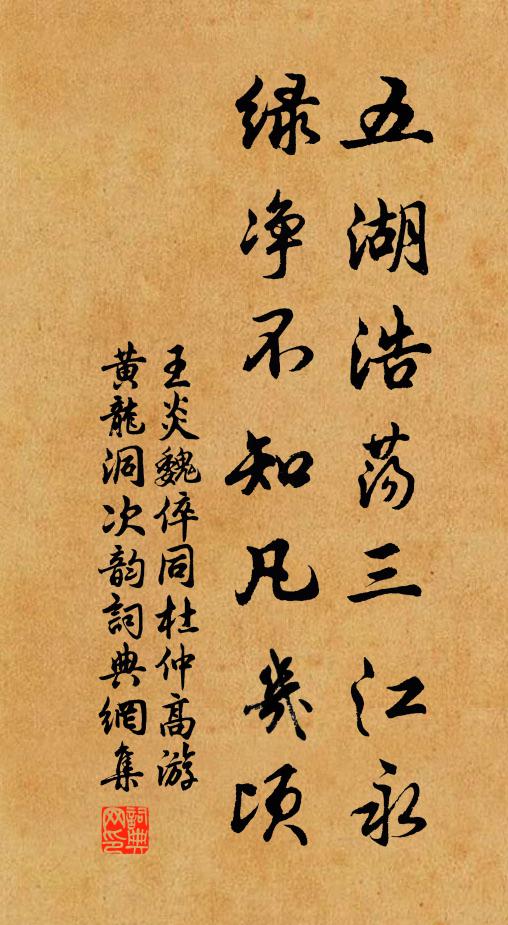 五湖浩荡三江永
绿净不知凡几顷
王炎魏倅同杜仲高游
黄龍洞次韵詞典網集
詞典网印